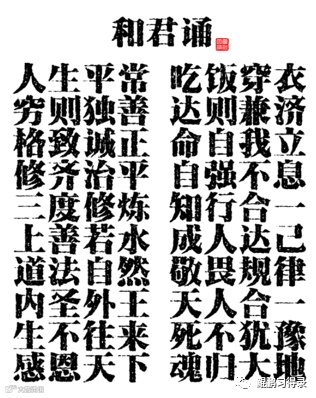 和君诵
人生平常 吃饭穿衣
穷则独善 达则兼济
格致诚正 命自我立
修齐治平 自强不息
三度修炼 知行合一
上善若水 成人达己
道法自然 敬畏规律
内圣外王 天人合一
生不往来 死不犹豫
感恩天下 魂归大地
鲲鹏习得录